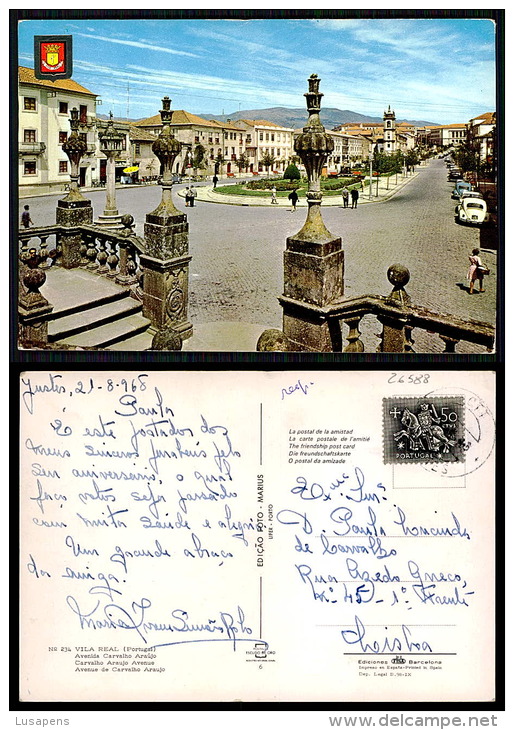 Justes, 21-8-968
Paula
É este portador dos
meus sinceros parabens pelo
seu aniversário, o qual
faço votos seja passado
com muita saúde e alegria.
Um grande abraço
da amiga.
Maria
Nº 234 VILA REAL (Portugal)
Avenida Carvalho Araújo
Carvalho Araujo Avenue
Avenue de Carvalho Araujo
EDIÇÃO FOTO - MARIUS
LIFER - PORTO
6
La postal de la amistad
La carte postale de l'amitié
The friendship post card
Die freundschaftskarte
O postal da amizade
26588
50
CTVS
PORTUGAL
Exma Snra
D. Paula
de Carvalho
Rua Azedo Gneco,
nº 45-1º Frente
Lisboa
Ediciones Barcelona
Impreso en España-Printed in Spain
Dep. Legal B.
Lusapens
www.delcampe.net